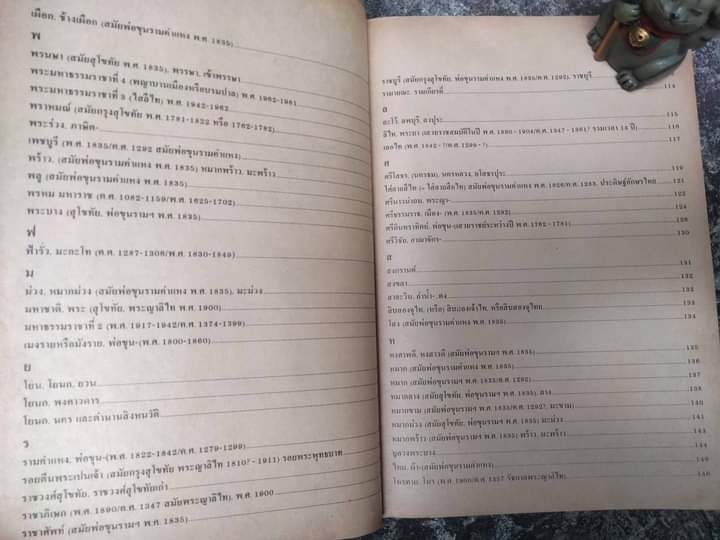 เผือก. ช้างเผือก (สมัยพ่อขุนรามคำแหง พ.ศ. 1835)
พ
พรนษา (สมัยสุโขทัย พ.ศ. 1835), พรรษา, เข้าพรรษา
พระมหาธรรมราชาที่ 4 (พญาบานเมืองหรือบรมปาล) พ.ศ. 1962-1981
พระมหาธรรมราชาที่ 3 (ไสลือไท) พ.ศ. 1942-1962
พราหมณ์ (สมัยกรุงสุโขทัย พ.ศ. 1781-1822 หรือ 1762-1782)
พระร่วง, ภาษิต-
เพชบูรี (พ.ศ. 1835/ค.ศ. 1292 สมัยพ่อขุนรามคำแหง)
พร้าว. (สมัยพ่อขุนรามคำแหง พ.ศ. 1835) หมากพร้าว. มะพร้าว
พลู (สมัยพ่อขุนรามคำแหง พ.ศ. 1835)
พรหม มหาราช (ค.ศ. 1082-1159/พ.ศ. 1625-1702)
พระบาง (สุโขทัย. พ่อขุนรามฯ พ.ศ. 1835)
ฟ
ฟ้ารั่ว. มะกะโท (ค.ศ. 1287-1306/พ.ศ. 1830-1849)
ม
ม่วง. หมากม่วง (สมัยพ่อขุนรามคำแหง พ.ศ. 1835), มะม่วง
มหาชาติ. พระ (สุโขทัย. พระญาลิไท พ.ศ. 1900)
มหาธรรมราชาที่ 2 (พ.ศ. 1917-1942/ค.ศ. 1374-1399)
เมงรายหรือมังราย. พ่อขุน-(พ.ศ. 1800-1860)
ย
โยน. โยนก. ยวน
โยนก. พงศาวดาร
โยนก. นคร และตำนานสิงหนวัติ
ร
รามคำแหง. พ่อขุน-(พ.ศ. 1822-1842/ค.ศ. 1279-1299)
รอยตีนพระเปนเจ้า (สมัยกรุงสุโขทัย พระญาลิไท 1810?-1911) รอยพระพุทธบาท
ราชวงศ์สุโขทัย. ราชวงศ์สุโขทัยเก่า
ราชาภิเษก (พ.ศ. 1890/ค.ศ. 1347 สมัยพระญาลิไท), พ.ศ. 1900
ราชาศัพท์ (สมัยพ่อขุนรามฯ พ.ศ. 1835)
ราชบูรี (สมัยกรุงสุโขทัย. พ่อขุนรามคำแหง พ.ศ. 1835/ค.ศ. 1292), ราชบุรี
รามายณะ. รามเกียรติ์ 114
ล
ละโว้. ลพบุรี. ลวปุระ 115
ลิไท, พระยา (เสวยราชสมบัติในปี พ.ศ. 1890-1904/ค.ศ. 1347-1361? รวมเวลา 14 ปี) 116
เลอไท (พ.ศ. 1842-?/ค.ศ. 1299-?) 117
ศ
ศรีโสธร. (นครธม), นครหลวง, ยโสธรปุระ 119
ใส่ลายสือไท (= ใส่ลายสือไท) สมัยพ่อขุนรามคำแหง พ.ศ. 1826/ค.ศ. 1283. ประดิษฐ์อักษรไทย 121
ศรีนาวนำถม. พระญา- 122
ศรีธรรมราช. เมือง- (พ.ศ. 1835/ค.ศ. 1292) 124
ศรีอินทราทิตย์. พ่อขุน-(เสวยราชย์ระหว่างปี พ.ศ. 1762-1781) 126
ศรีวิชัย. อาณาจักร- 130
ส
สงกรานต์ 131
สงขลา 132
สาละวิน. ลำน้ำ-. คง 132
สิบสองจุไท. (หรือ) สิบสองเจ้าไท. หรือสิบสองจุไทย 133
โสง (สมัยพ่อขุนรามคำแหง พ.ศ. 1835) 134
ห
หงสาวดี. หงสาวดี (สมัยพ่อขุนรามฯ พ.ศ. 1835) 135
หมาก (สมัยพ่อขุนรามคำแหง พ.ศ. 1835) 136
หมาก (สมัยพ่อขุนรามฯ พ.ศ. 1835/ค.ศ. 1292) 137
หมากลาง (สมัยสุโขทัย. พ่อขุนรามฯ พ.ศ. 1835), ลาง 138
หมากขาม (สมัยพ่อขุนรามฯ พ.ศ. 1835/ค.ศ. 1292?, มะขาม) 140
หมากม่วง (สมัยสุโขทัย. พ่อขุนรามฯ พ.ศ. 1835), มะม่วง 141
หมากพร้าว (สมัยพ่อขุนรามฯ พ.ศ. 1835) พร้าว. มะพร้าว 143
หลวงพระบาง
ไหม. ผ้า-(สมัยพ่อขุนรามคำแหง)
โหราศาสตร์. โหร (พ.ศ. 1900/ค.ศ. 1357 รัชกาลพระญาลิไท)